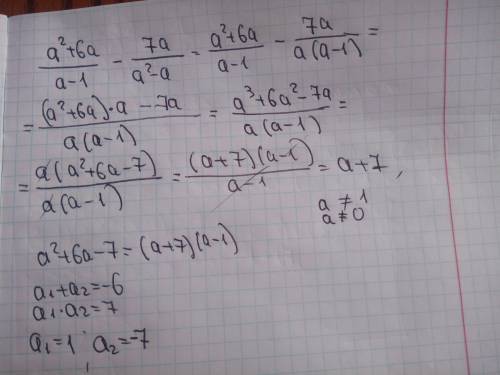 (a²+6a)/(a-1) - 7a/(a²-a) = (a²+6a)/(a-1) - 7a/(a(a-1)) =
= ((a²+6a)·a - 7a)/(a(a-1)) = (a³+6a²-7a)/(a(a-1)) =
= a(a²+6a-7)/(a(a-1)) = (a+7)(a-1)/(a-1) = a+7,
a ≠ 1
a ≠ 0
a²+6a-7=(a+7)(a-1)
a₁+a₂=-6
a₁·a₂=7
a₁=1 a₂=-7